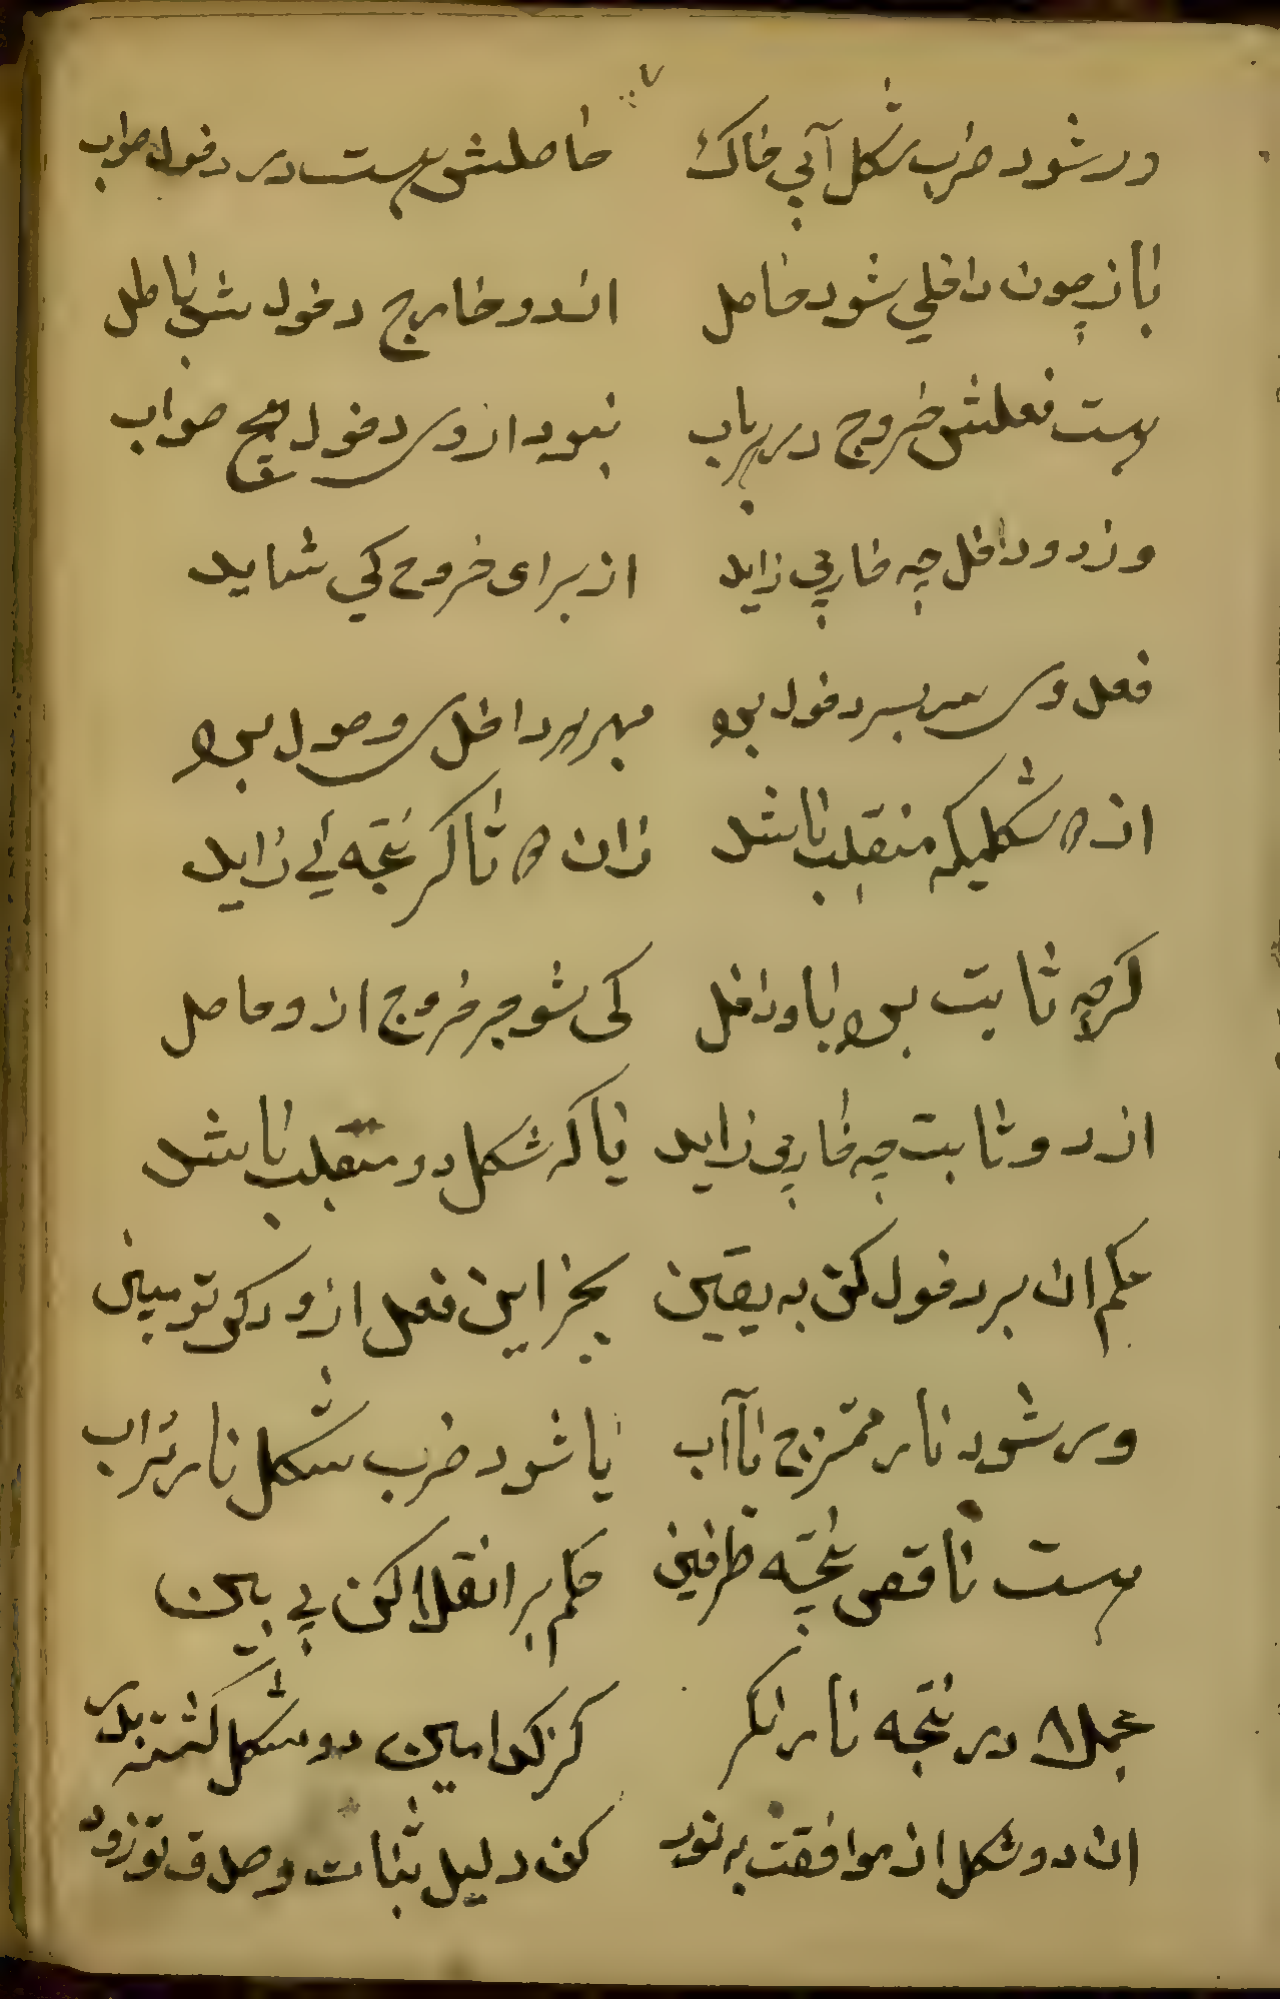 ور شود ضرب شکل آبی خاک حاصلش هست در دخول صواب
باز چون داخلی شود حاصل از دو خارج دخول شد باطل
هست فعلش خروج در هر باب نبود از وی دخول هیچ صواب
وز دو داخل چه خارجی زاید از برای خروج کی شاید
فعل وی سر بسر دخول بود بهر هر داخلی وصول بود
از دو شکلیکه منقلب باشد زان دو تا گر نتیجه ای زاید
گرچه ثابت بود و یا داخل کی شود جز خروج ازو حاصل
از دو ثابت چه خارجی زاید یا که شکل دو منقلب باشد
حکم ان بر دخول کن به یقین بجز این فعل ازو دکر تو مبین
ور شود نار ممتزج با آب یا شود ضرب شکل نار تراب
هست ناقص نتیجه طرفین حکم بر انقلاب کن بی بین
عمل در نتیجه نار انکر کز کدامین دو شکل کشته بدر
ان دو شکل از موافقت به نور کن دلیل ثبات و صدق تو زود